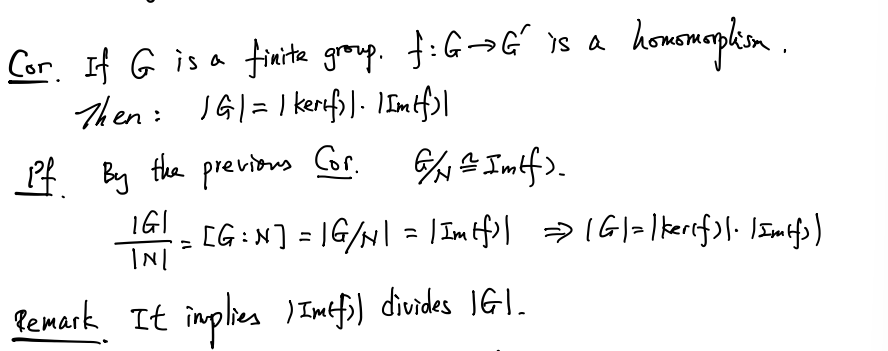 Cor. If G is a finite group. f: G → G' is a homomorphism.
Then: |G| = |ker(f)|·|Im(f)|
Pf. By the previous Cor. G/N ≅ Im(f).
|G|/|N| = [G:N] = |G/N| = |Im(f)| ⇒ |G| = |ker(f)|·|Im(f)|
Remark. It implies |Im(f)| divides |G|.